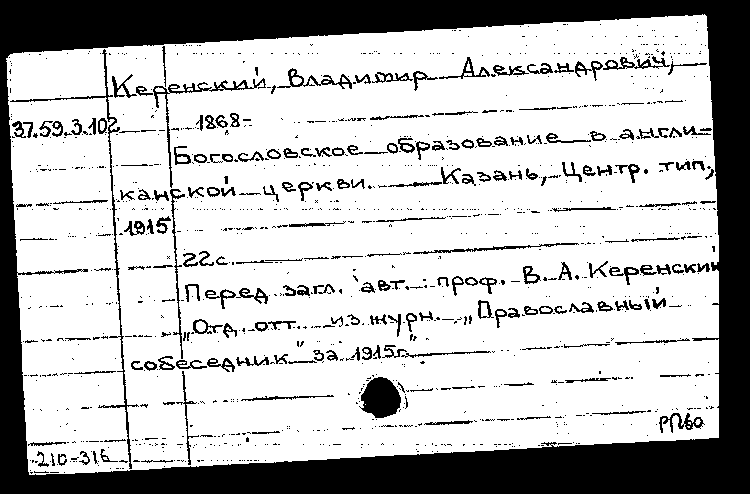 Керенский, Владимир Александрович,
37.59.3.102 1868-
Богословское образование в англи-
канской церкви. — Казань, Центр. тип,
1915
22с.
Перед загл. авт.: проф. В. А. Керенский
„Отд. отт. из журн. „Православный
собеседник" за 1915г."
210-316